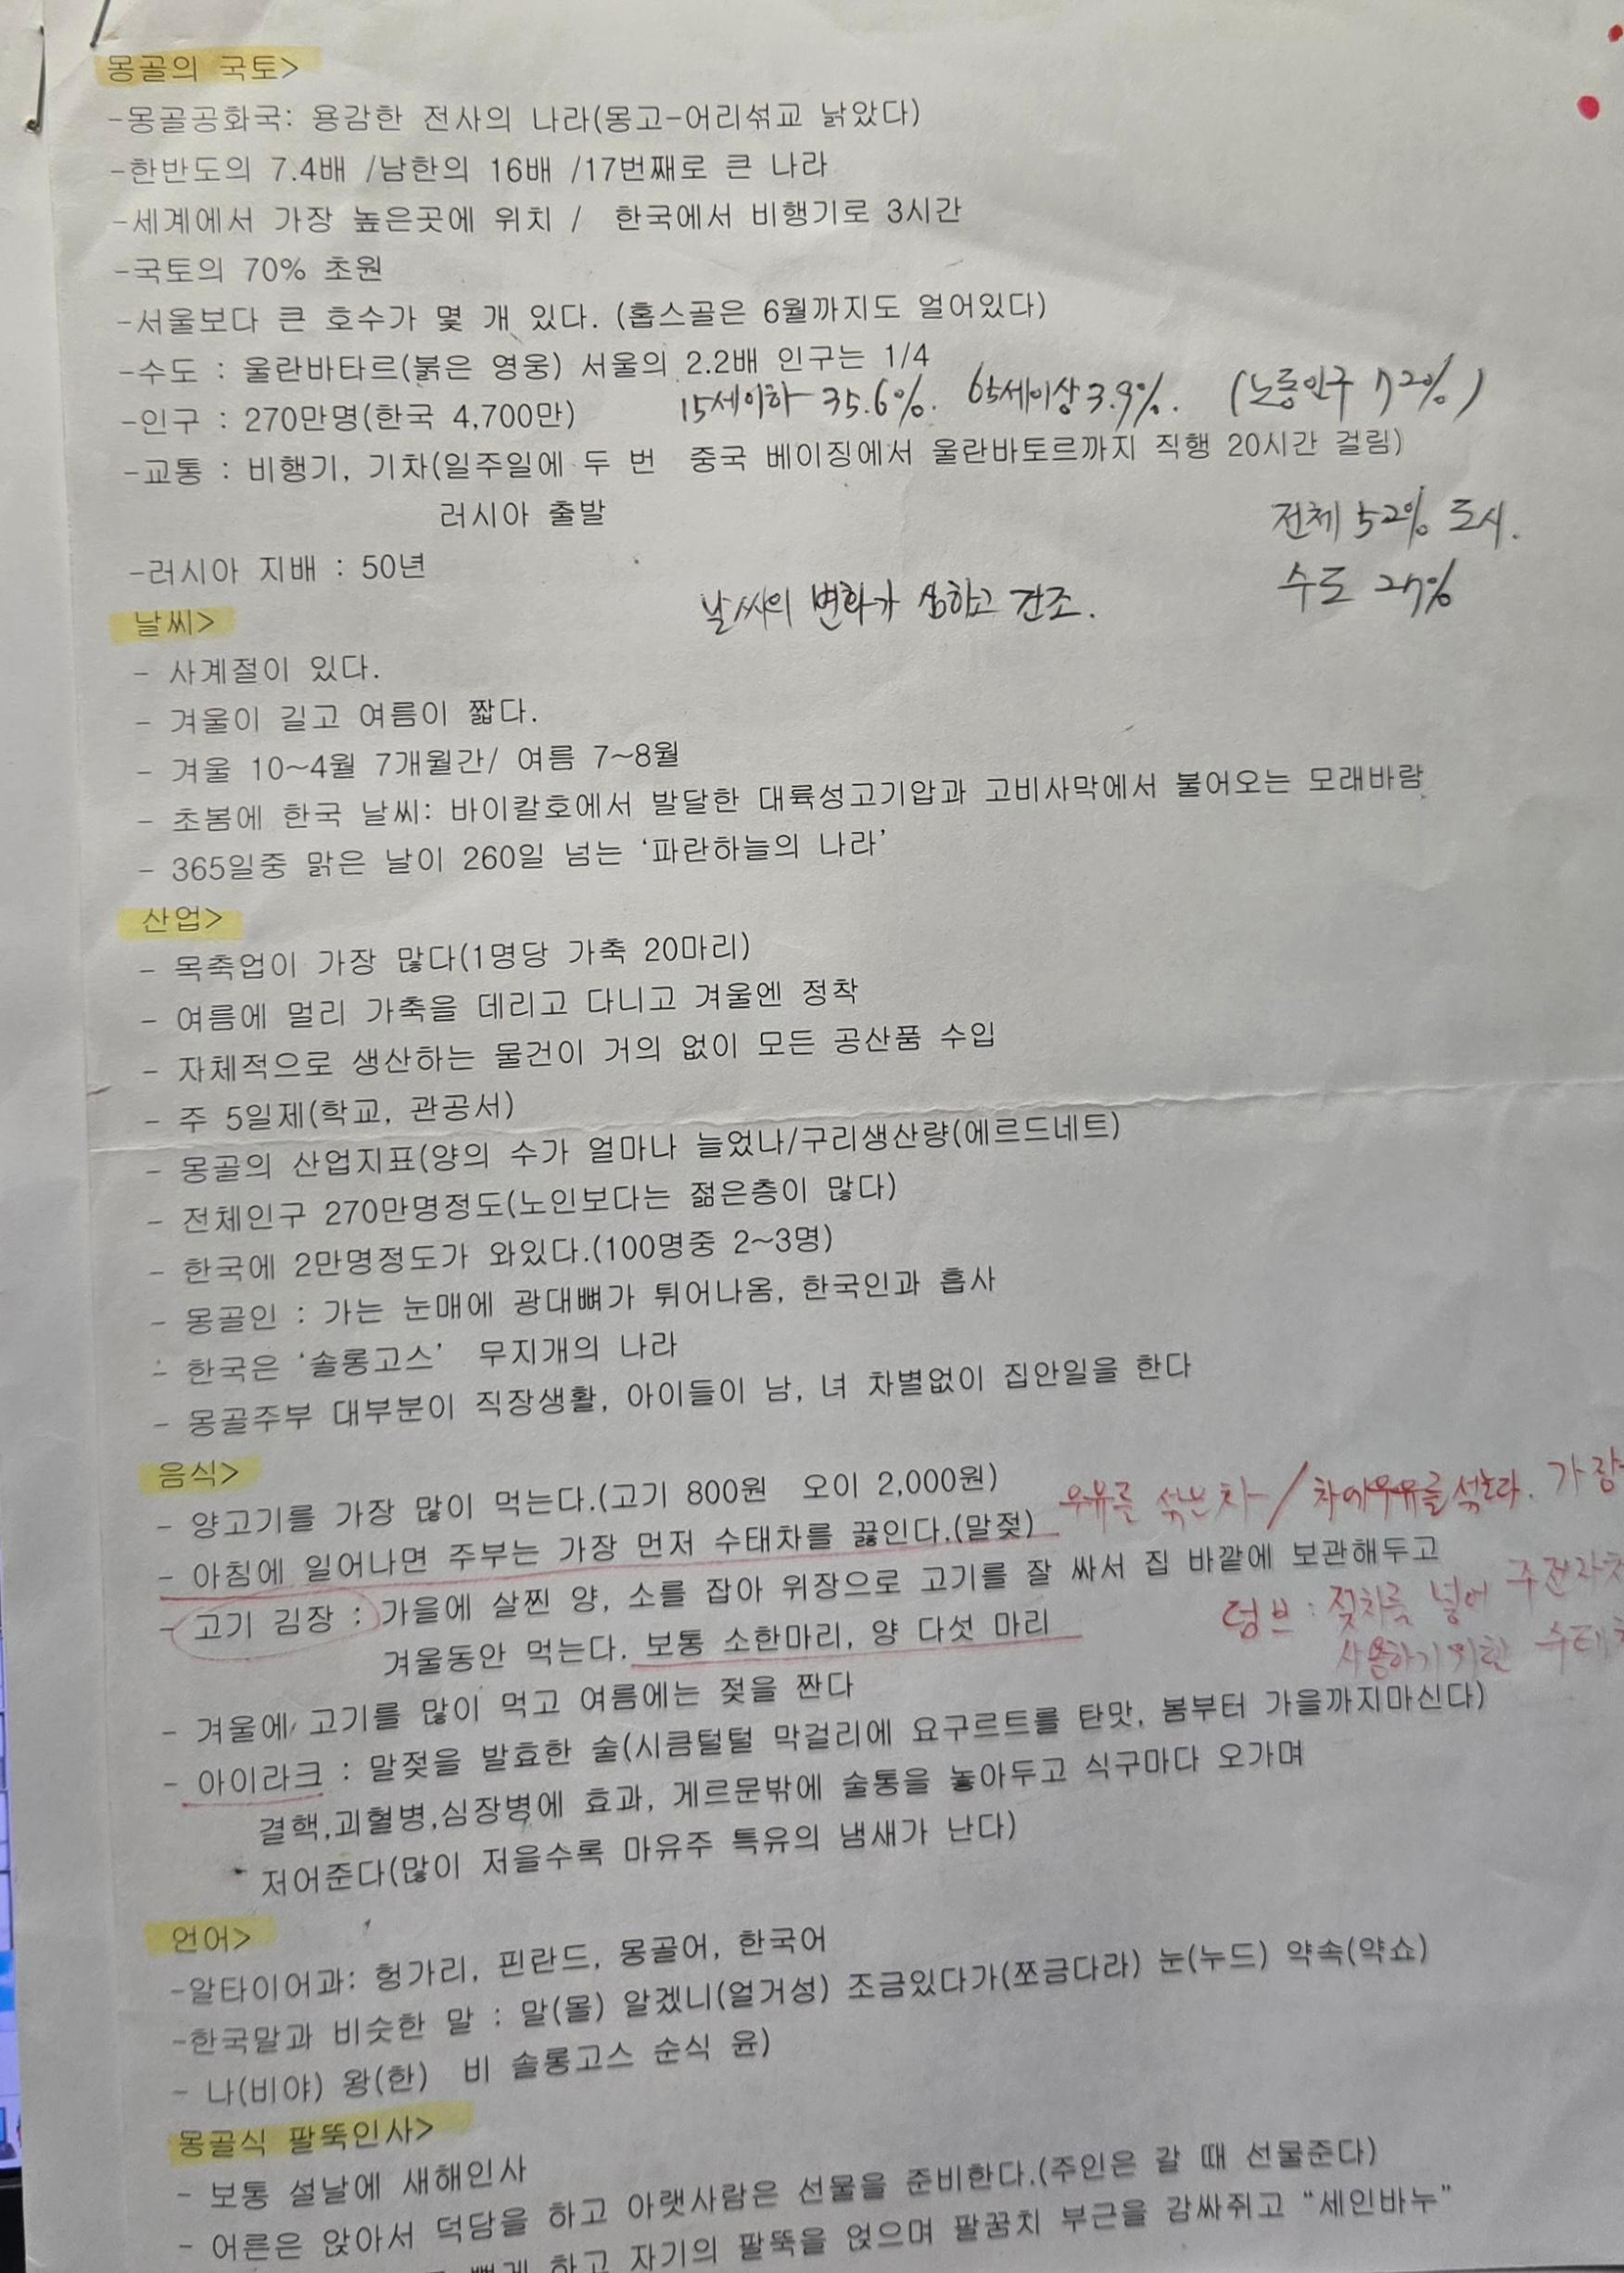 몽골의 국토>
-몽골공화국: 용감한 전사의 나라(몽고-어리섞교 낡았다)
-한반도의 7.4배 /남한의 16배 /17번째로 큰 나라
-세계에서 가장 높은곳에 위치 / 한국에서 비행기로 3시간
-국토의 70% 초원
-서울보다 큰 호수가 몇 개 있다. (홉스골은 6월까지도 얼어있다)
-수도 : 울란바타르(붉은 영웅) 서울의 2.2배 인구는 1/4
-인구 : 270만명(한국 4,700만) 15세이하 35.6%. 65세이상 3.9%. (노동인구 72%)
-교통 : 비행기, 기차(일주일에 두 번 중국 베이징에서 울란바토르까지 직행 20시간 걸림)
러시아 출발
전체 52% 도시.
-러시아 지배 : 50년
수도 27%
날씨>
날씨의 변화가 심하고 건조.
- 사계절이 있다.
- 겨울이 길고 여름이 짧다.
- 겨울 10~4월 7개월간/ 여름 7~8월
- 초봄에 한국 날씨: 바이칼호에서 발달한 대륙성고기압과 고비사막에서 불어오는 모래바람
- 365일중 맑은 날이 260일 넘는 ‘파란하늘의 나라’
산업>
- 목축업이 가장 많다(1명당 가축 20마리)
- 여름에 멀리 가축을 데리고 다니고 겨울엔 정착
- 자체적으로 생산하는 물건이 거의 없이 모든 공산품 수입
- 주 5일제(학교, 관공서)
- 몽골의 산업지표(양의 수가 얼마나 늘었나/구리생산량(에르드네트)
- 전체인구 270만명정도(노인보다는 젊은층이 많다)
- 한국에 2만명정도가 와있다.(100명중 2~3명)
- 몽골인 : 가는 눈매에 광대뼈가 튀어나옴, 한국인과 흡사
- 한국은 ‘솔롱고스’ 무지개의 나라
- 몽골주부 대부분이 직장생활, 아이들이 남, 녀 차별없이 집안일을 한다
음식>
- 양고기를 가장 많이 먹는다.(고기 800원 오이 2,000원)
우유를 섞는차 / 차에우유를 섞는다. 가장
- 아침에 일어나면 주부는 가장 먼저 수태차를 끓인다.(말젖)
- 고기 김장 : 가을에 살찐 양, 소를 잡아 위장으로 고기를 잘 싸서 집 바깥에 보관해두고
겨울동안 먹는다. 보통 소한마리, 양 다섯 마리
덤브 : 젖차를 넣어 주전자
사용하기위한 수태
- 겨울에 고기를 많이 먹고 여름에는 젖을 짠다
- 아이라크 : 말젖을 발효한 술(시큼털털 막걸리에 요구르트를 탄맛, 봄부터 가을까지마신다)
결핵,괴혈병,심장병에 효과, 게르문밖에 술통을 놓아두고 식구마다 오가며
저어준다(많이 저을수록 마유주 특유의 냄새가 난다)
언어>
-알타이어과: 헝가리, 핀란드, 몽골어, 한국어
-한국말과 비슷한 말 : 말(몰) 알겠니(얼거성) 조금있다가(쪼금다라) 눈(누드) 약속(약쇼)
- 나(비야) 왕(한) 비 솔롱고스 순식 윤)
몽골식 팔뚝인사>
- 보통 설날에 새해인사
- 어른은 앉아서 덕담을 하고 아랫사람은 선물을 준비한다.(주인은 갈 때 선물준다)
하고 자기의 팔뚝을 얹으며 팔꿈치 부근을 감싸쥐고 “세인바누”